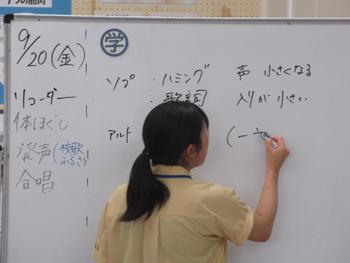 9/20(金)
リコーダー
体ほぐし
発声(校歌
ふるさと
合唱
学
ソプ ・ハミング 声 小さくなる
・歌詞 入りが小さい
アルト (一